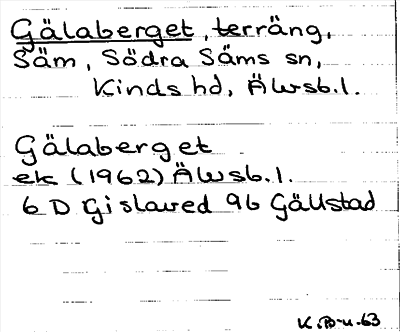 Gälaberget, terräng,
Säm, Södra Säms sn,
Kinds hd, Älvsb.l.
Gälaberget
ek (1962) Älvsb.l.
6 D Gislaved 9b Gällstad